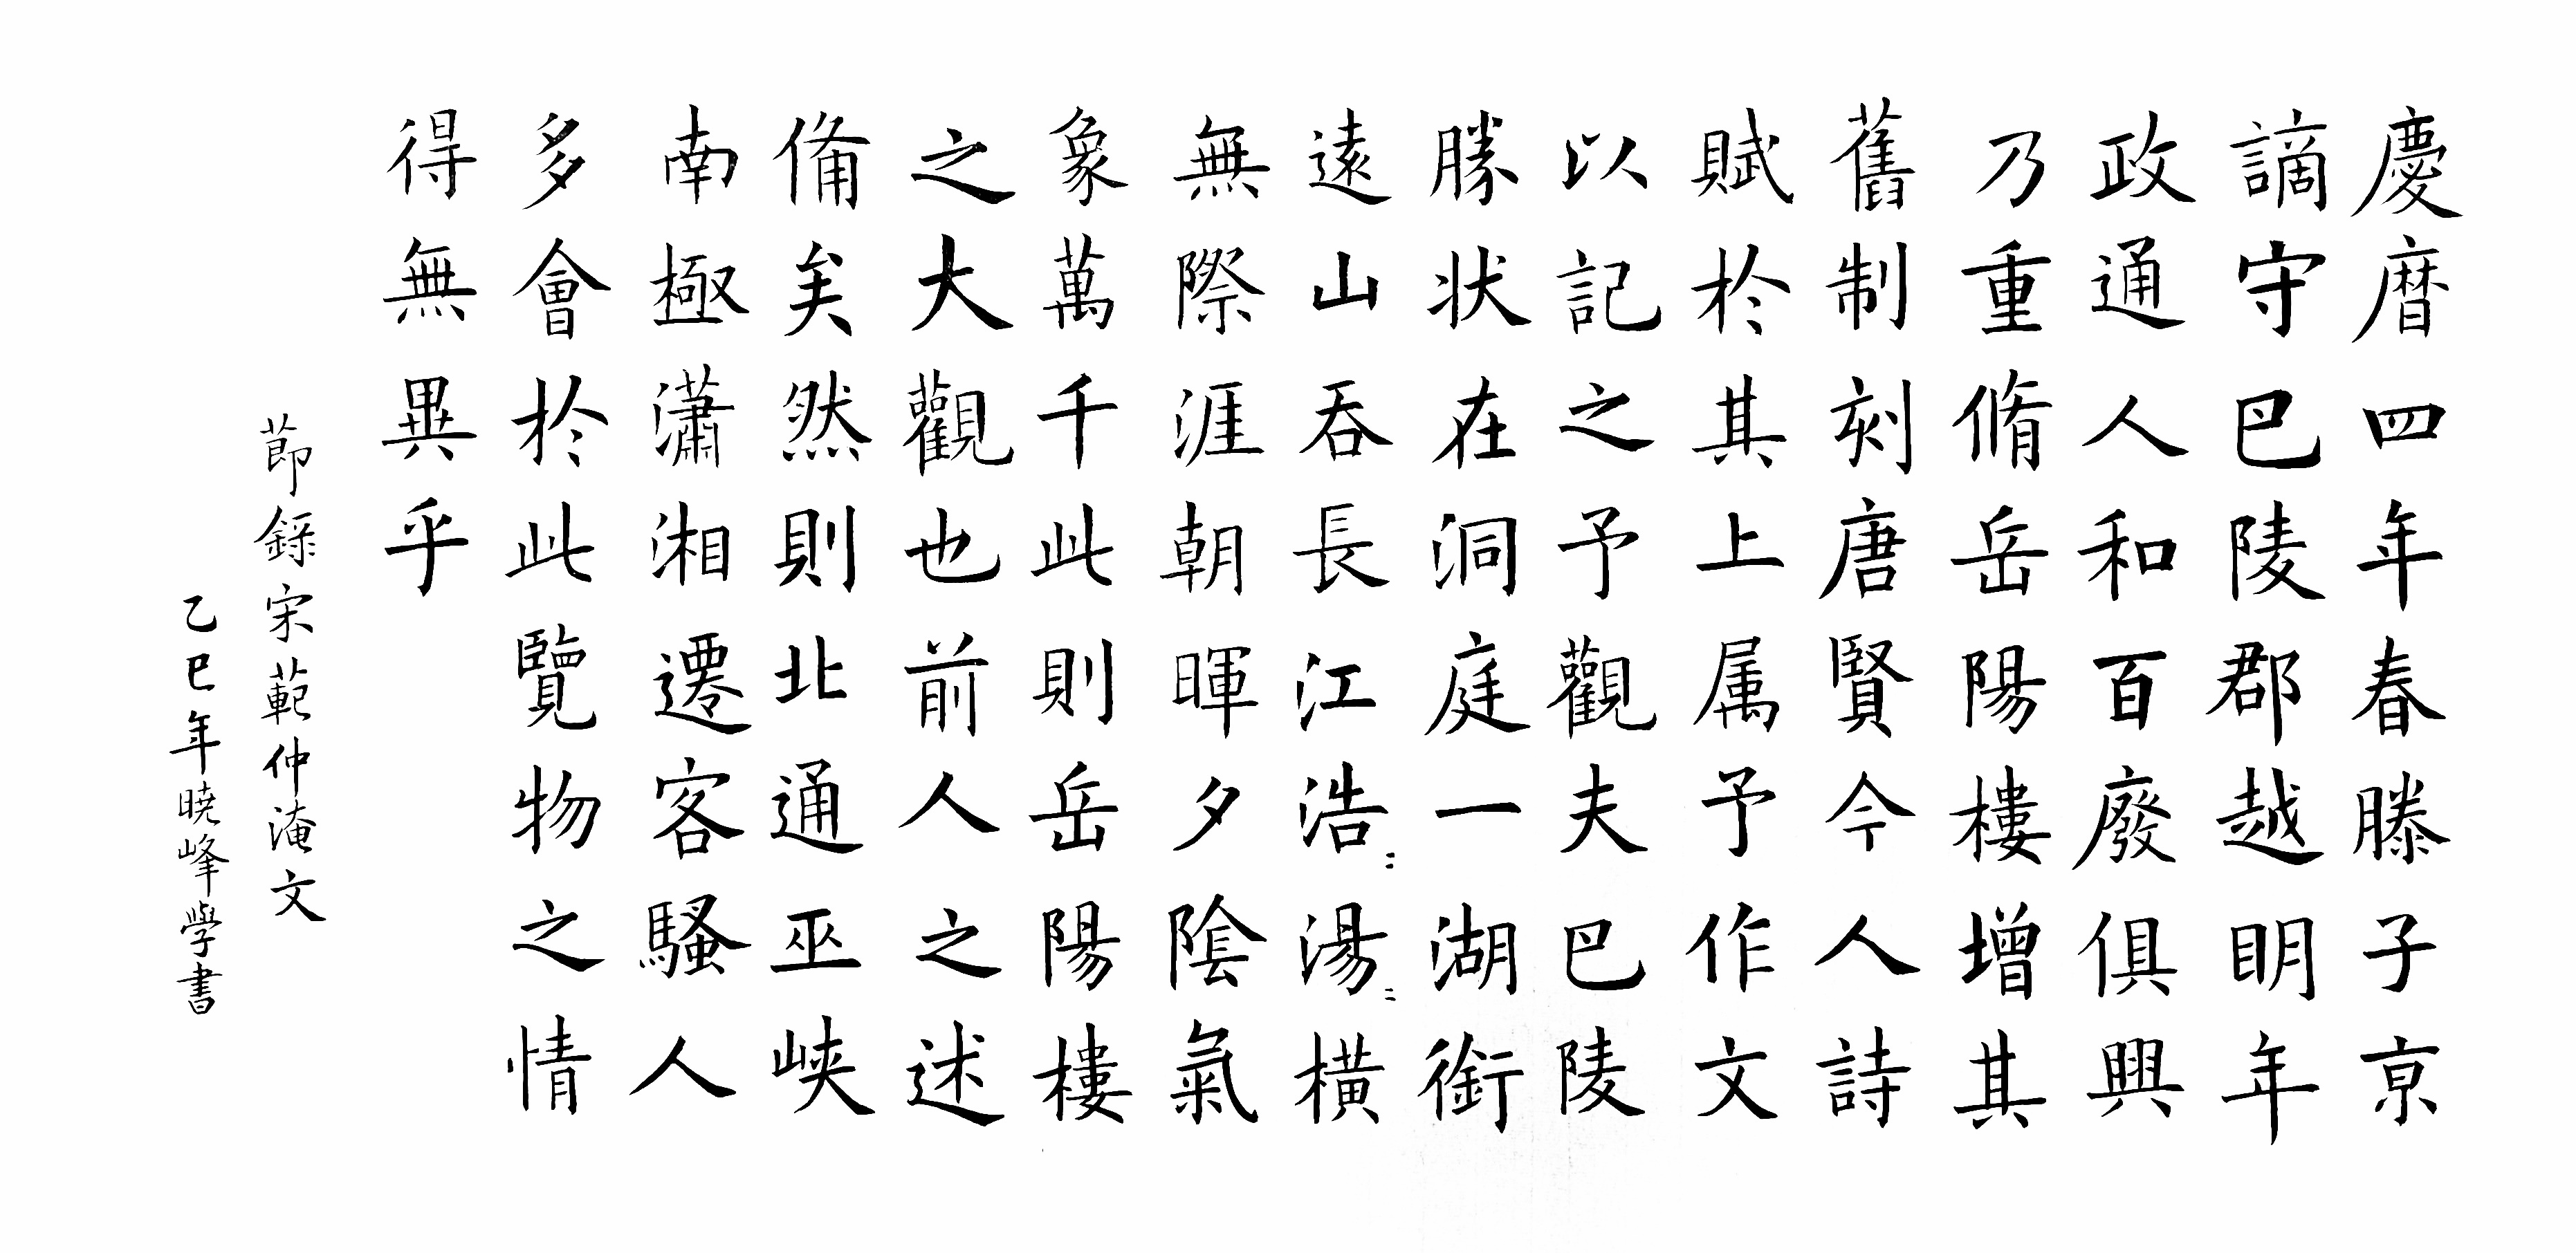 慶暦四年春滕子亰
謫守巴陵郡越眀年
政通人和百廢俱興
乃重脩岳陽樓增其
舊制刻唐賢今人詩
賦於其上属予作文
以記之予觀夫巴陵
勝状在洞庭一湖銜
遠山吞長江浩〻湯〻橫
無際涯朝暉夕陰氣
象萬千此則岳陽樓
之大觀也前人之述
備矣然則北通巫峽
南極瀟湘遷客騷人
多會於此覽物之情
得無異乎
節錄宋範仲淹文
乙巳年曉峰學書